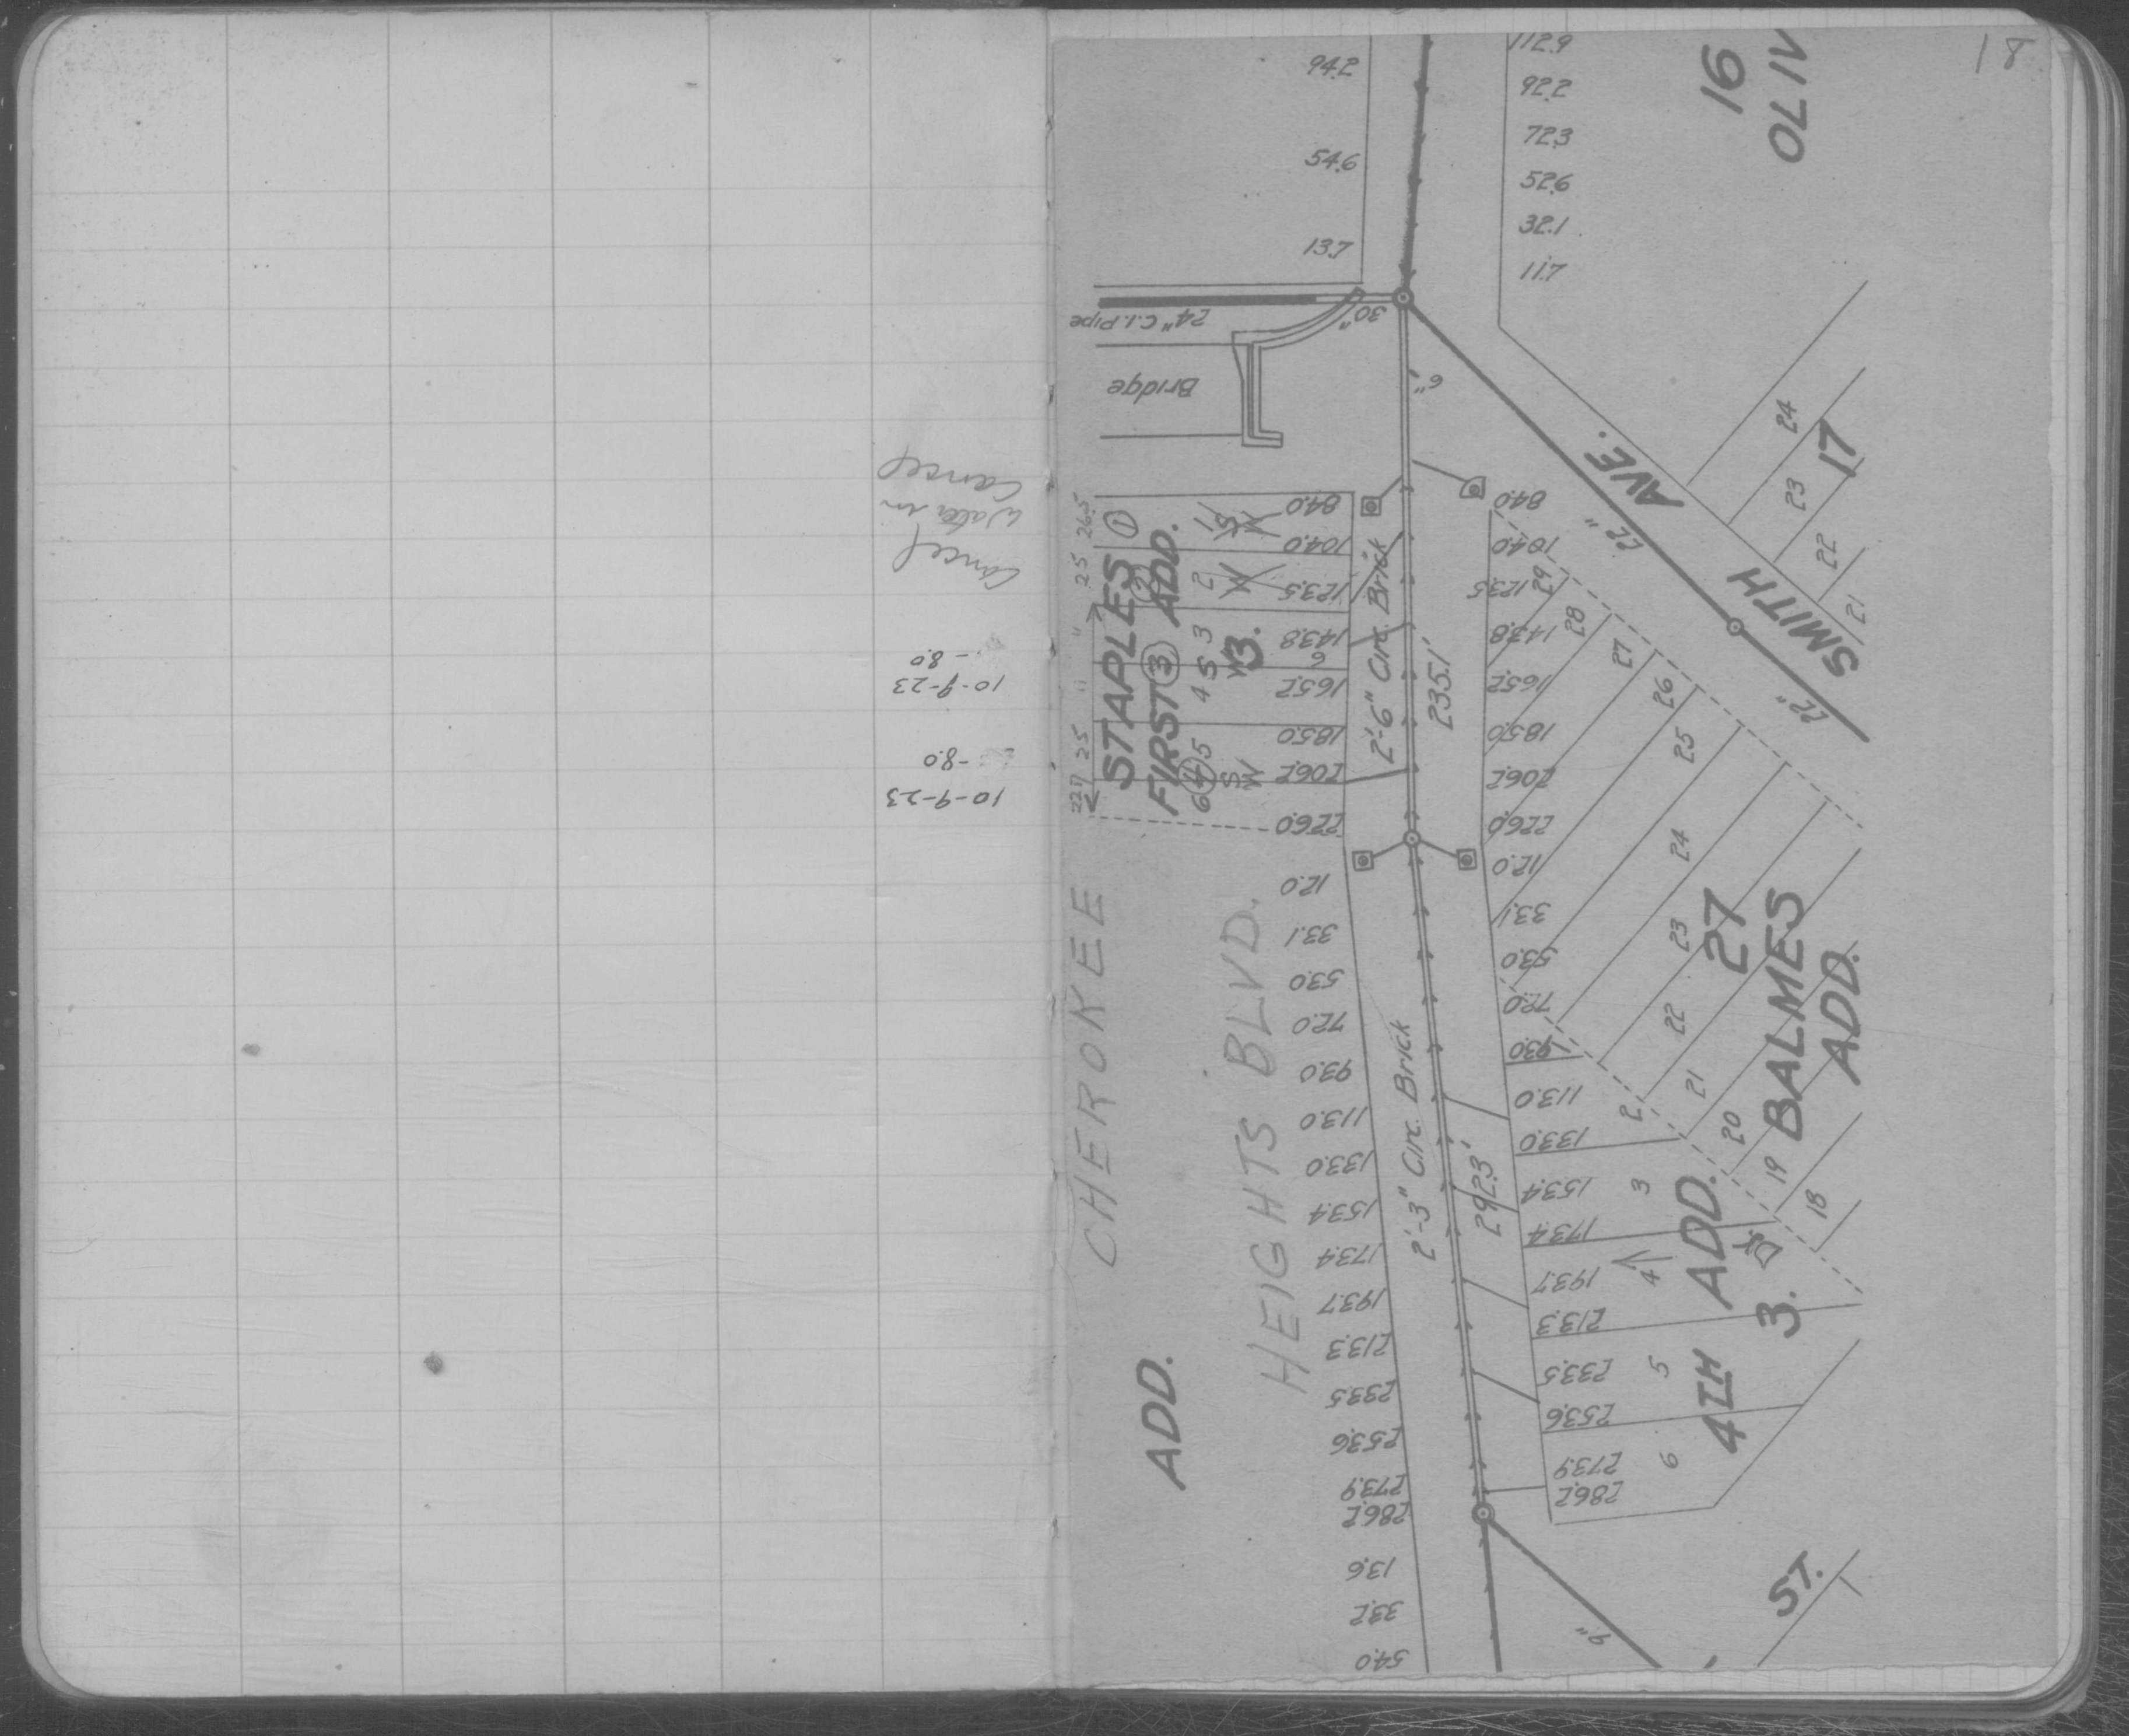 Cancel
Water in
Cancel
10-9-23
-8.0
10-9-23
-8.0
18
16
OLIV
94.2
54.6
13.7
112.9
92.2
72.3
52.6
32.1
11.7
24" C.I. Pipe
30"
Bridge
6"
SMITH AVE.
22"
22"
17
24
23
22
21
STAPLES
FIRST ADD.
3.
1
2
3
4
5
6
26.5
25
25
84.0
104.0
123.5
143.8
165.2
185.0
206.2
226.0
2'-6" Circ. Brick
235.1'
84.0
104.0
123.5
143.8
165.2
185.0
206.2
226.0
29
28
27
26
25
24
23
22
21
20
19
18
27
BALMES
ADD.
CHEROKEE
HEIGHTS BLVD.
ADD.
12.0
33.1
53.0
72.0
93.0
113.0
133.0
153.4
173.4
193.7
213.3
233.5
253.6
273.9
286.2
2'-3" Circ. Brick
292.3'
12.0
33.1
53.0
72.0
93.0
113.0
133.0
153.4
173.4
193.7
213.3
233.5
253.6
273.9
286.2
1
2
3
4
5
6
4TH ADD.
3.
13.6
33.2
54.0
9"
ST.